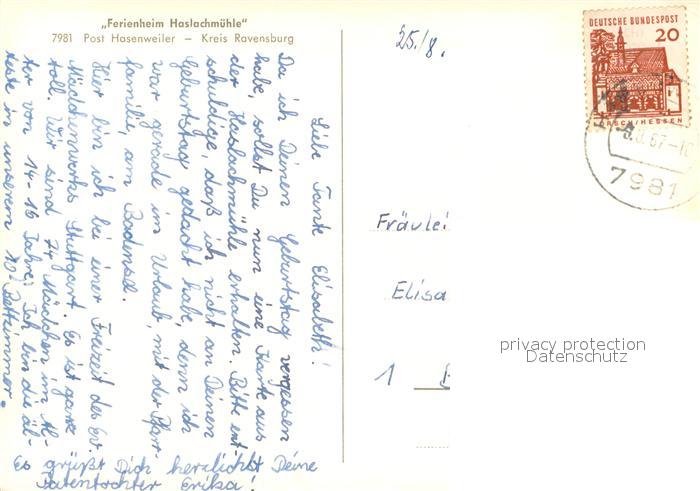 „Ferienheim Haslachmühle"
7981 Post Hasenweiler – Kreis Ravensburg
Liebe Tante Elisabeth!
Da ich Deinen Geburtstag vergessen
habe, sollst Du nun eine Karte aus
der Haslachmühle erhalten. Bitte ent-
schuldige, daß ich nicht an Deinen
Geburtstag gedacht habe, denn ich
war gerade im Urlaub, mit der Pfarr-
familie, am Bodensee.
Hier bin ich bei einer Freizeit des Ev.
Mädchenwerks Stuttgart. Es ist ganz
toll. Wir sind 74 Mädchen im Al-
ter von 14-16 Jahre. Ich bin die äl-
teste in unserem 10-Bettzimmer.
Es grüßt Dich herzlichst Deine
Patentochter Erika!
25./8.
DEUTSCHE BUNDESPOST
20
LORSCH/HESSEN
.67-1
7981
Fräulei
Elisa
1
privacy protection
Datenschutz